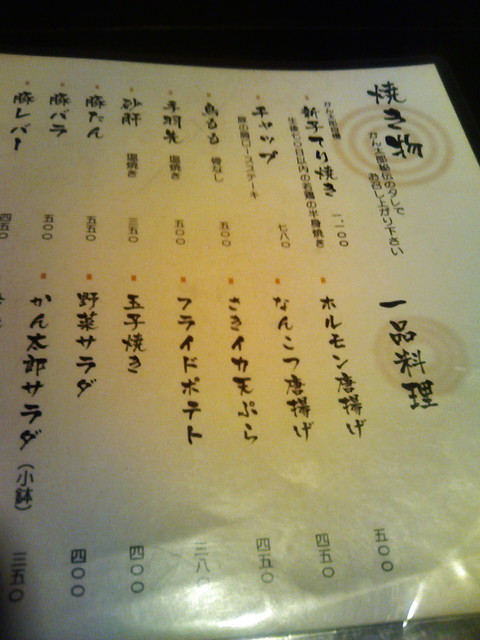 焼き物
かん太郎秘伝のタレで
お召し上がり下さい
新子てり焼き 一、一〇〇
生後七〇日以内の若鶏の半身焼き
チャップ 七八〇
豚の肩ロースステーキ
鳥もも 骨なし 五〇〇
手羽先 塩焼き 五〇〇
砂肝 塩焼き 三五〇
豚たん 五五〇
豚バラ 五〇〇
豚レバー 四五〇
一品料理
ホルモン唐揚げ 五〇〇
なんこつ唐揚げ 四五〇
さきイカ天ぷら 四五〇
フライドポテト 三八〇
玉子焼き 四〇〇
野菜サラダ 四〇〇
かん太郎サラダ（小鉢） 三五〇